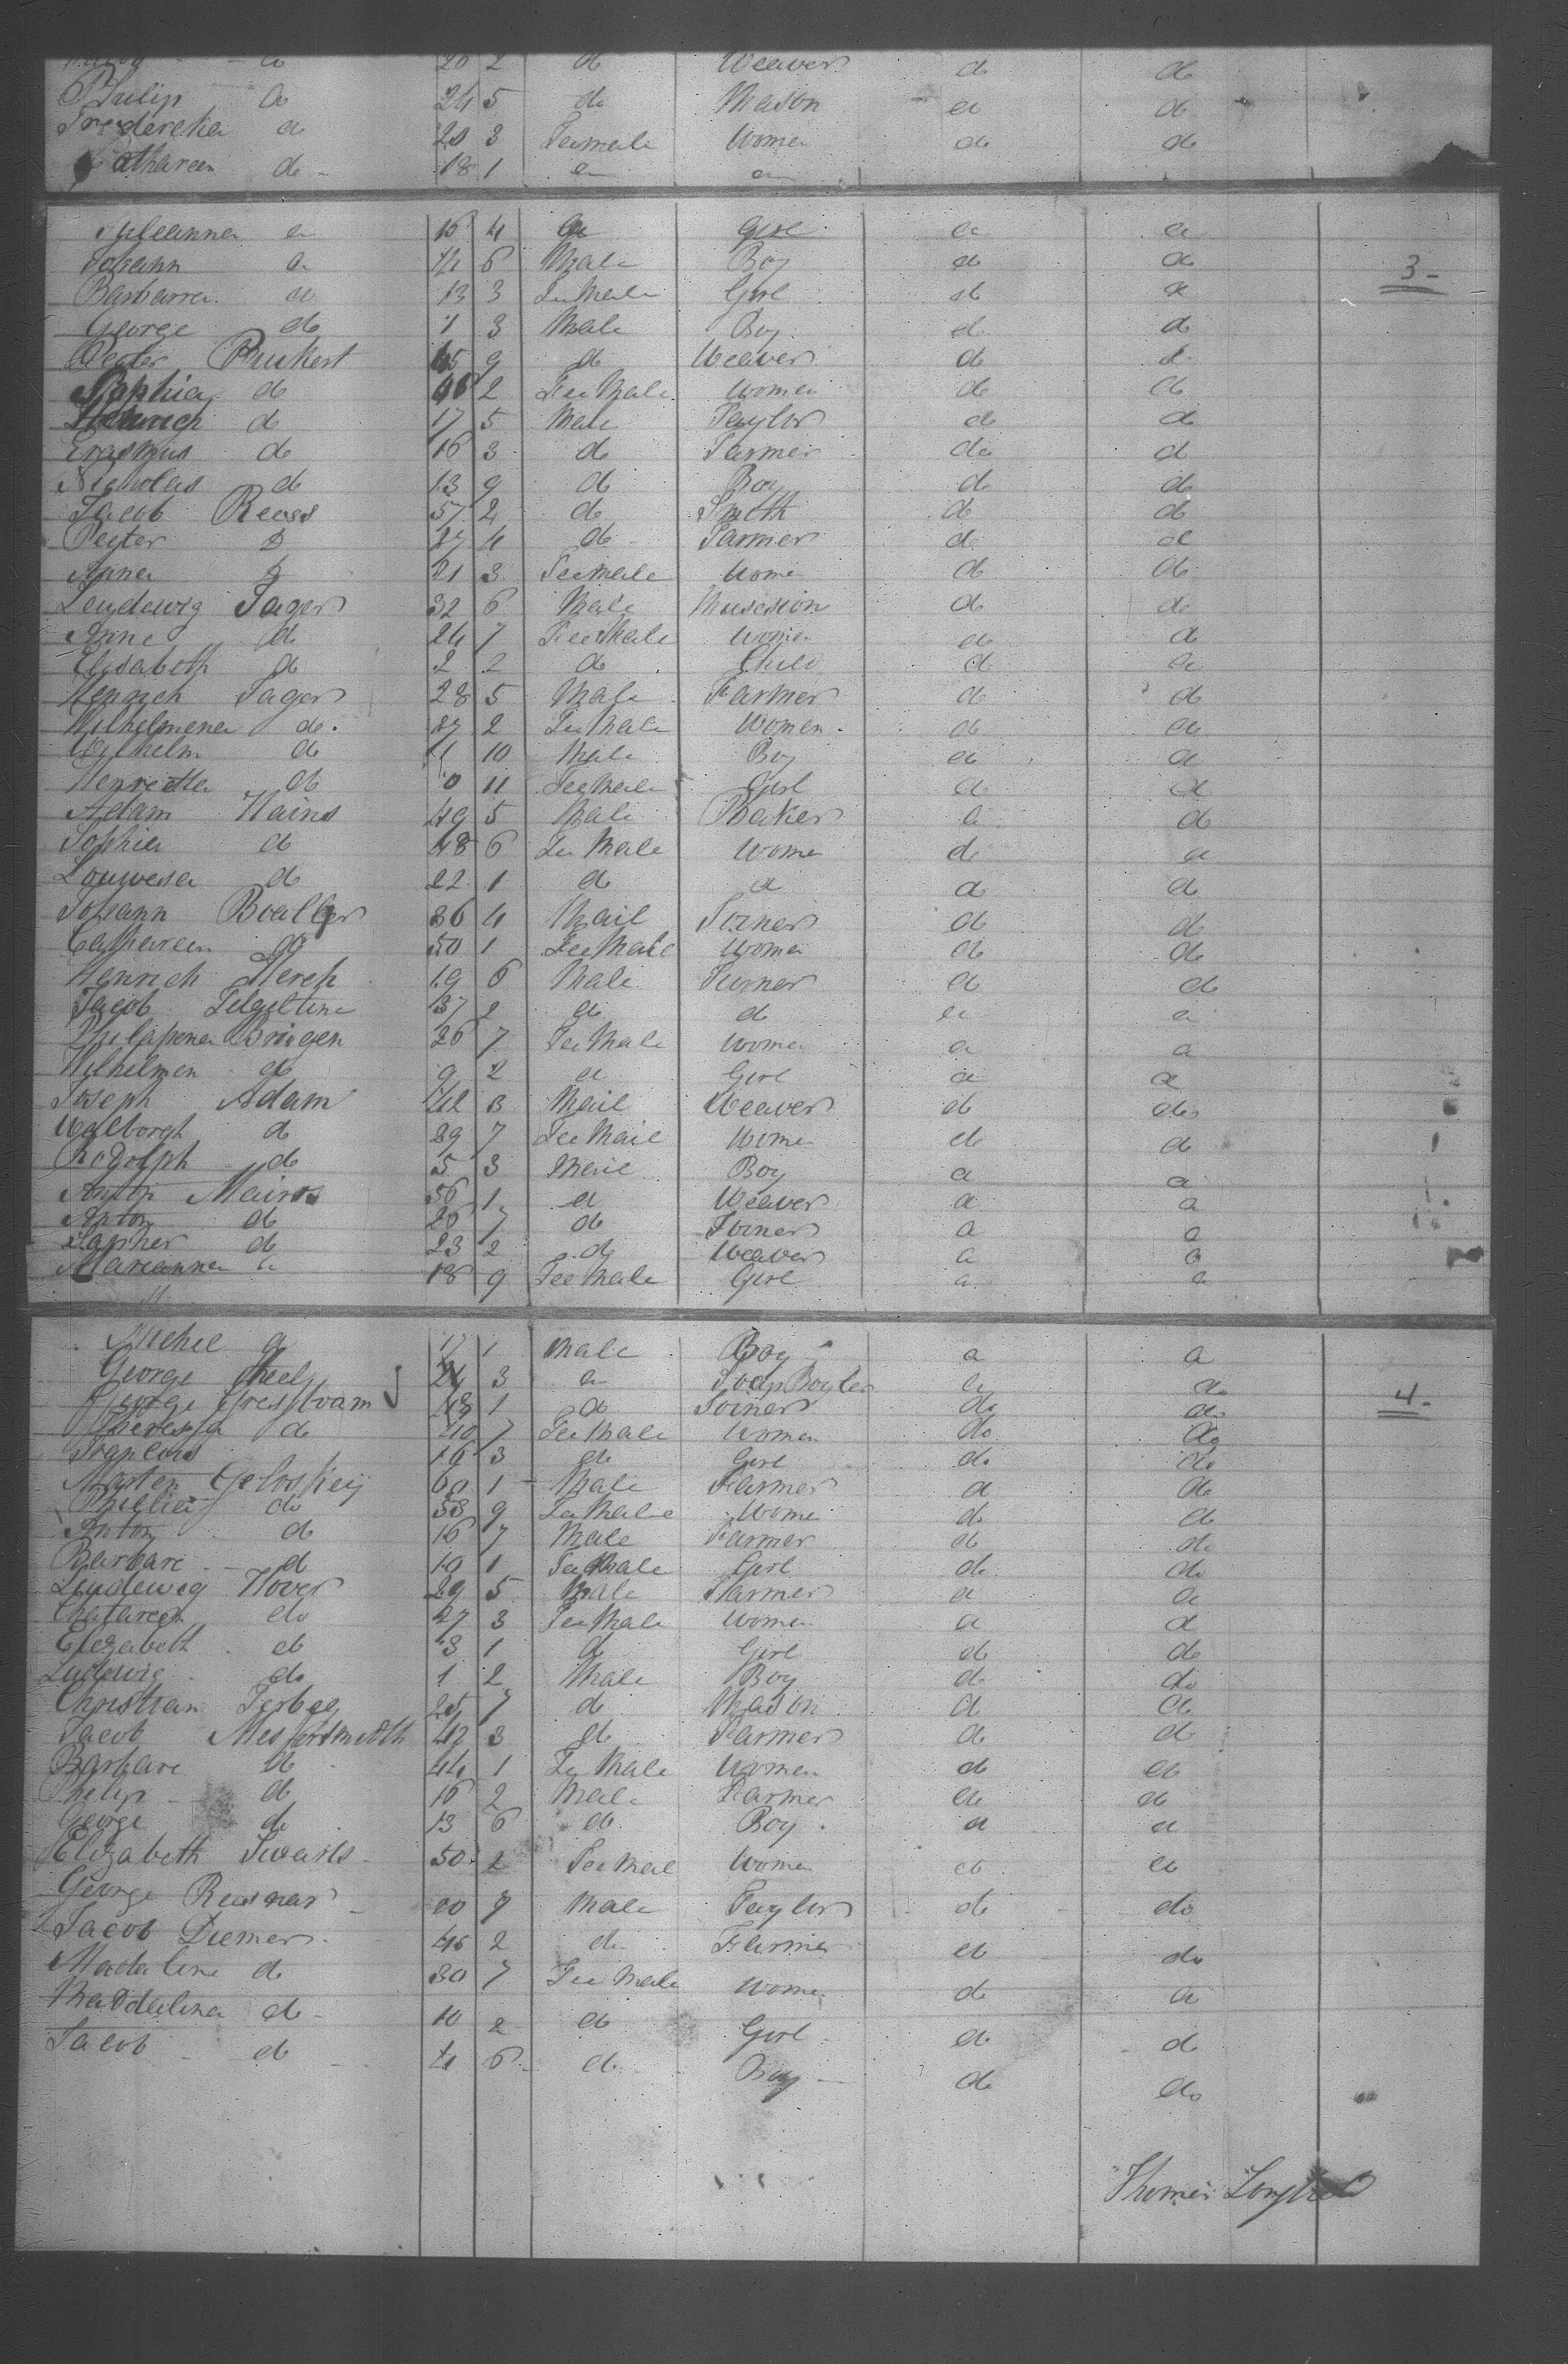 do 26 2 do Weaver do do
Philip do 24 5 do Mason do do
Fredereka do 20 3 Feemale Women do do
Cathareen do 18 1 do do
Juleanna do 16 4 do Girl do do
Johann do 14 6 Male Boy do do
3-
Barbarra do 13 3 FeeMale Girl do do
George do 1 3 Male Boy do do
Peeter Ruckert 45 9 do Weaver do do
Sophia do 46 2 FeeMale Women do do
Heinrich do 17 5 Male Taylor do do
Erasmus do 16 3 do Farmer do do
Nicholas do 13 9 do Boy do do
Jacob Reess 57 2 do Smith do do
Peeter D 27 4 do Farmer do do
Anna D 21 3 Feemale Wome do do
Leudewig Jager 32 6 Male Muscsion do do
Anne do 24 7 FeeMale Women do do
Elisabeth do 2 2 do Child do do
Henrich Jager 28 5 Male Farmer do do
Wilhelmena do. 27 2 FeeMale Women do do
Wilhelm do 1 10 Male Boy do do
Henrietta do 0 11 FeeMale Girl do do
Adam Hains 49 5 Male Baker do do
Sophia do 48 6 FeeMale Women do do
Louwesa do 22 1 do do do do
Johann Boaller 36 4 Mail Joiner do do
Cathareen do 50 1 FeeMale Women do do
Henrich Lerch 19 6 Male Turner do do
Jacob 37 2 do do do do
Philapena 26 7 FeeMale Women do do
Wilhelmen do 9 2 do Girl do do
Joseph Adam 42 3 Mail Weaver do do
Walborgh do 29 7 FeeMail Women do do
Rodolph do 5 3 Mail Boy do do
Anton Mairos 56 1 do Weaver do do
Anton do 26 7 do Joiner do do
do 23 2 do Weaver do do
Mareanna do 18 9 FeeMale Girl do do
Michel do 17 1 Male Boy do do
George Theel 24 3 do Soap Boyler do do
4-
George 48 1 do Joiner do do
Theressa do 40 7 FeeMale Women do do
Francois 16 3 do Girl do do
Marten Geloskey 60 1 Male Farmer do do
do 53 9 FeeMale Women do do
Anton do 16 7 Male Farmer do do
Barbara do 10 1 FeeMale Girl do do
Leudewig Hover 29 5 Male Farmer do do
Chatareen do 27 3 FeeMale Women do do
Elezabeth do 3 1 do Girl do do
Ludewig do 1 2 Male Boy do do
Christian 25 7 do Mason do do
Jacob Messersmidth 47 3 do Farmer do do
Barbara do 44 1 FeeMale Women do do
Philip do 16 2 Male Farmer do do
George do 13 6 do Boy do do
Elezabeth Swarts 50 2 FeeMal Women do do
George Reesnar 20 7 Male Taylor do do
Jacob Diemer 46 2 do Farmer do do
Madaline do 30 7 FeeMale Women do do
Maddalena do 10 2 do Girl do do
Jacob do 4 6 do Boy do do